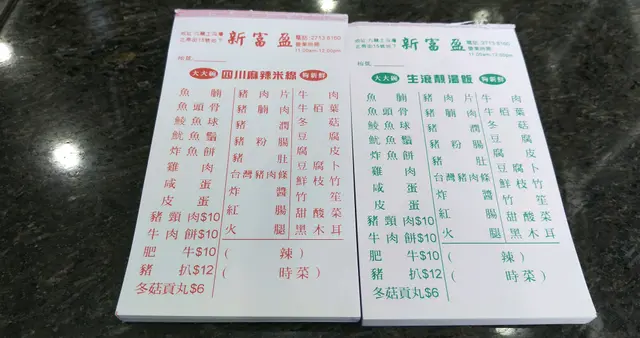 新富盈
電話:2713 8760
營業時間
11:00am-12:00am
大大碗 四川麻辣米線 夠新鮮
魚腩
魚頭骨
鯪魚球
魷魚鬚
炸魚餅
雞肉
咸蛋
皮蛋
豬頸肉$10
牛肉餅$10
肥牛$10
豬扒$12
冬菇貢丸$6
豬肉片
豬腩肉
豬潤
豬粉腸
豬肚
台灣豬肉條
炸醬
紅腸
火腿
牛肉
牛栢葉
冬菇
豆腐
腐皮
豆腐卜
鮮枝竹
竹笙
甜酸菜
黑木耳
( 辣)
( 時菜)
新富盈
電話:2713 8760
營業時間
11:00am-12:00am
大大碗 生滾靚湯飯 夠新鮮
魚腩
魚頭骨
鯪魚球
魷魚鬚
炸魚餅
雞肉
咸蛋
皮蛋
豬頸肉$10
牛肉餅$10
肥牛$10
豬扒$12
冬菇貢丸$6
豬肉片
豬腩肉
豬潤
豬粉腸
豬肚
台灣豬肉條
炸醬
紅腸
火腿
牛肉
牛栢葉
冬菇
豆腐
腐皮
豆腐卜
鮮枝竹
竹笙
甜酸菜
黑木耳
( 辣)
( 時菜)